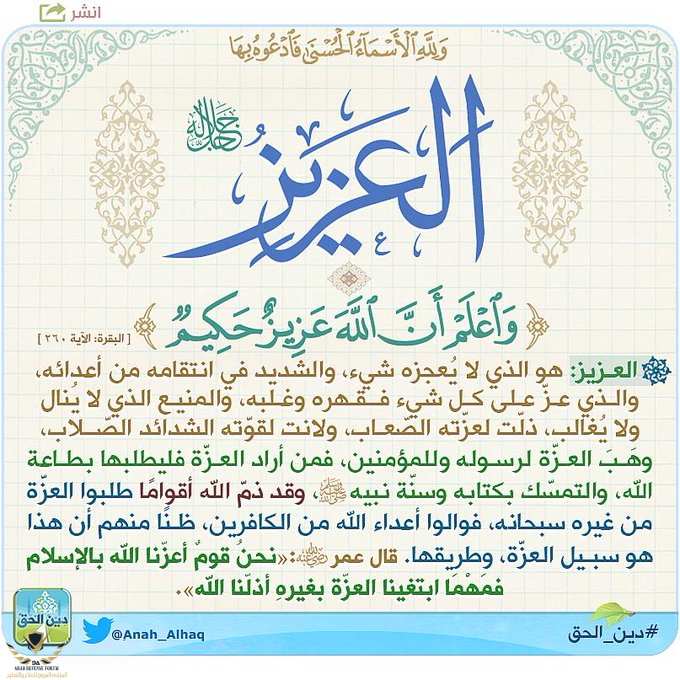 انشر
وَلِلَّهِ الْأَسْمَاءُ الْحُسْنَىٰ فَادْعُوهُ بِهَا
العزيز
جل جلاله
وَاعْلَمْ أَنَّ اللَّهَ عَزِيزٌ حَكِيمٌ
[ البقرة: الآية ٢٦٠ ]
العـزيز: هو الذي لا يُعجزه شيء، والشديد في انتقامه من أعدائه،
والـذي عـزّ على كـل شيء فـقـهره وغلبه، والمنيع الذي لا يُنال
ولا يُغالب، ذلّت لعزّته الصّعاب، ولانت لقوّته الشدائد الصّـلاب،
وهَـبَ العـزّة لرسوله وللمؤمنين، فمن أراد العـزّة فليطلبها بطـاعة
الله، والتمسّك بكتابه وسنّة نبيه ﷺ، وقد ذمّ الله أقوامًا طلبوا العزّة
من غيره سبحانه، فوالوا أعداء الله من الكافرين، ظـنًّا منهم أن هذا
هو سبيل العزّة، وطريقها. قال عمر رضي الله عنه: «نحنُ قومٌ أعزّنا الله بالإسلام
فمَهْمَا ابتغينا العزّة بغيرهِ أذلّنا الله».
دين الحق
@Anah_Alhaq
#دين_الحق
DA
ARAB DEFENSE FORUM
المنتدى العربي للدفاع والتسليح